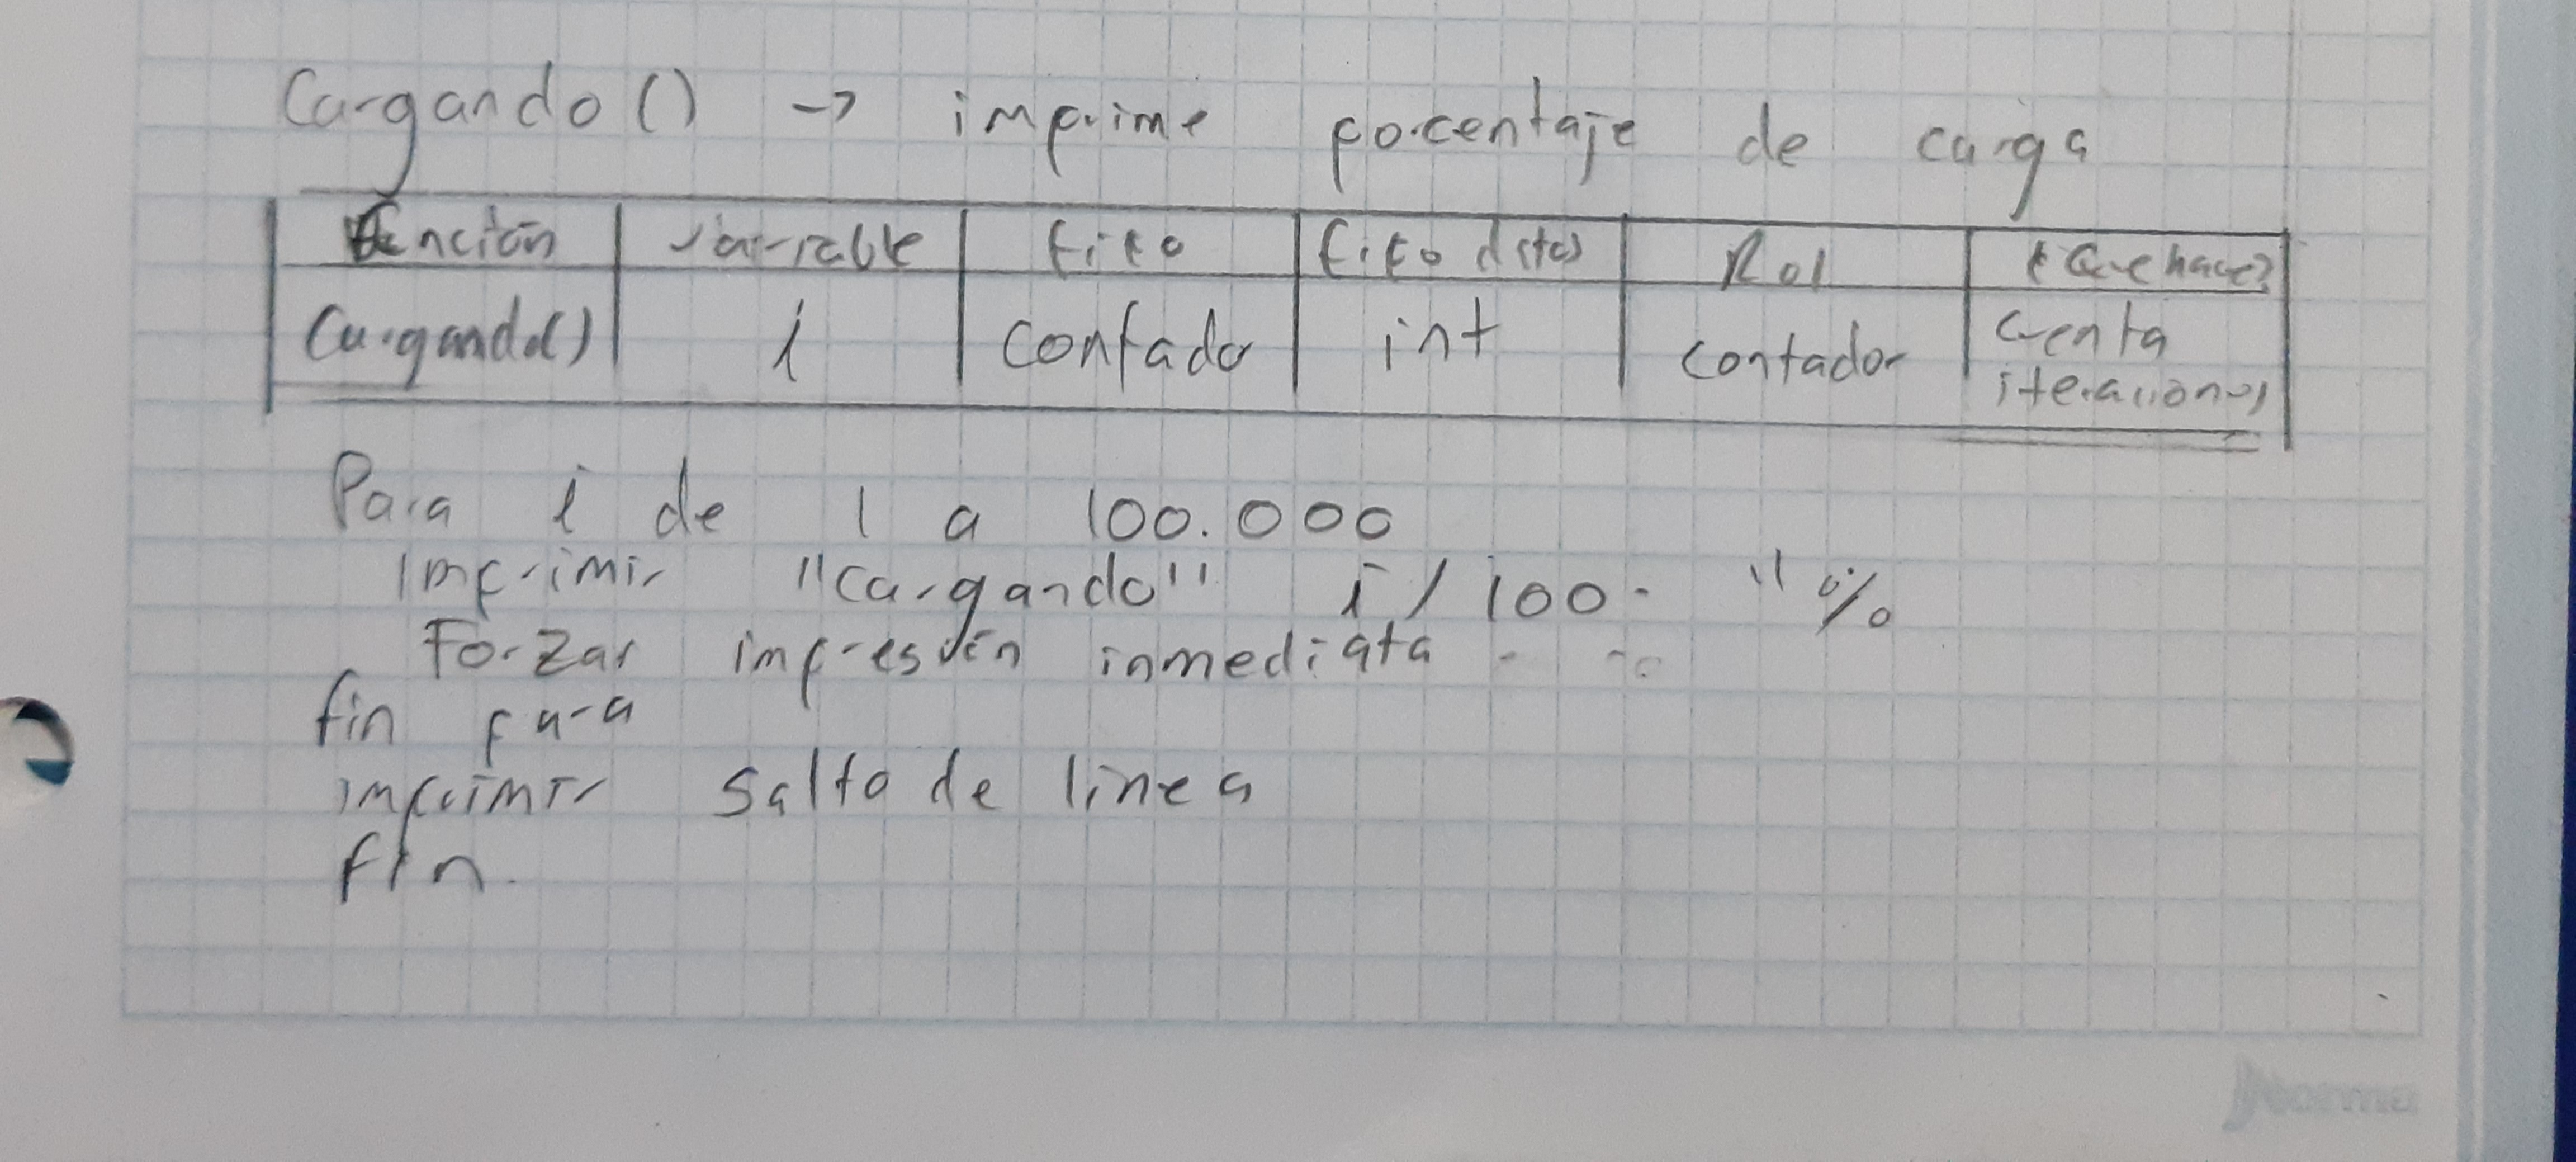 Cargando() -> imprime porcentaje de carga
Función | variable | tipo | tipo dato | Rol | ¿Que hace?
Cargando() | i | contador | int | contador | cuenta iteraciones
Para i de 1 a 100.000
Imprimir "Cargando" i / 100. "%
Forzar impresión inmediata
fin para
imprimir salto de linea
fin.
Norma